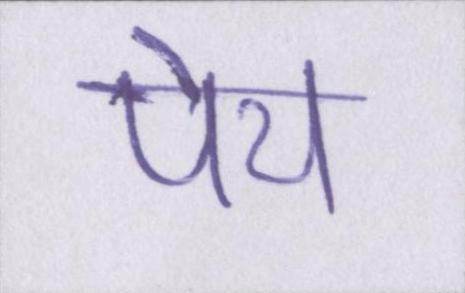 पेय